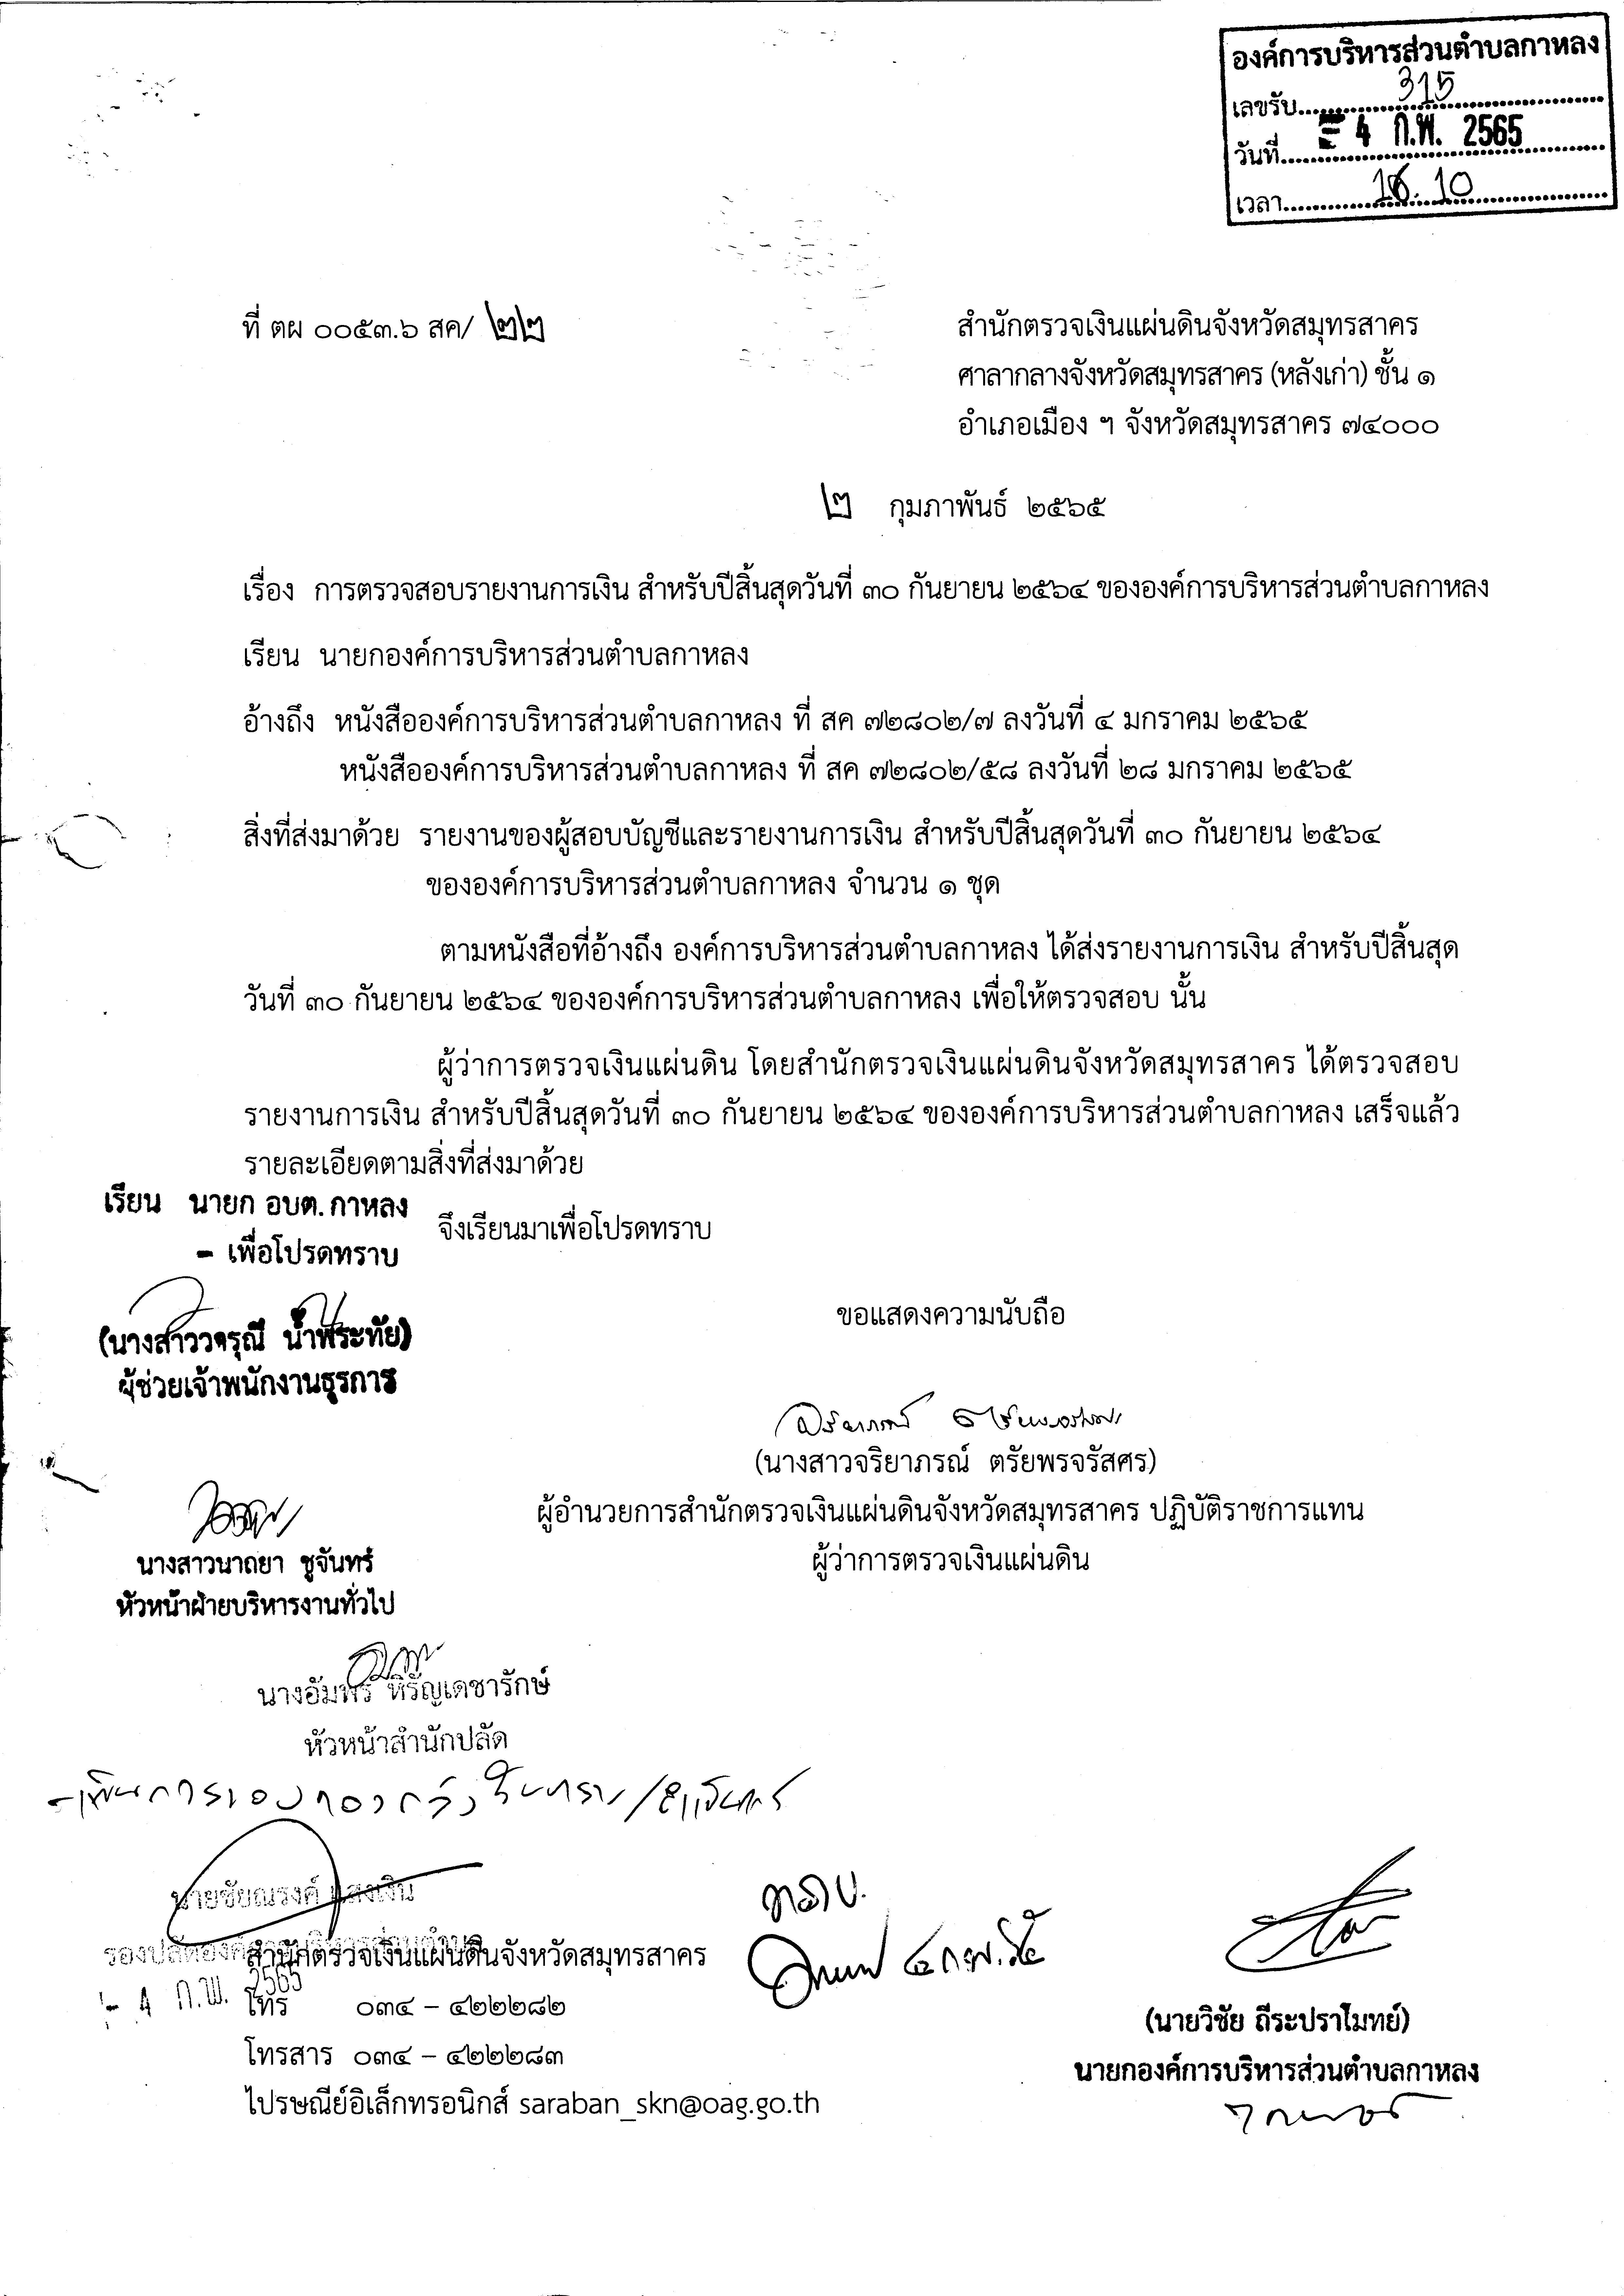 องค์การบริหารส่วนตำบลกาหลง
เลขรับ 315
วันที่ - 4 ก.พ. 2565
เวลา 16.10
ที่ ตผ ๐๐๕๓.๖ สค/ ๒๒
สำนักตรวจเงินแผ่นดินจังหวัดสมุทรสาคร
ศาลากลางจังหวัดสมุทรสาคร (หลังเก่า) ชั้น ๑
อำเภอเมือง ฯ จังหวัดสมุทรสาคร ๗๔๐๐๐
๒ กุมภาพันธ์ ๒๕๖๕
เรื่อง การตรวจสอบรายงานการเงิน สำหรับปีสิ้นสุดวันที่ ๓๐ กันยายน ๒๕๖๔ ขององค์การบริหารส่วนตำบลกาหลง
เรียน นายกองค์การบริหารส่วนตำบลกาหลง
อ้างถึง หนังสือองค์การบริหารส่วนตำบลกาหลง ที่ สค ๗๒๘๐๒/๗ ลงวันที่ ๔ มกราคม ๒๕๖๕
หนังสือองค์การบริหารส่วนตำบลกาหลง ที่ สค ๗๒๘๐๒/๕๘ ลงวันที่ ๒๘ มกราคม ๒๕๖๕
สิ่งที่ส่งมาด้วย รายงานของผู้สอบบัญชีและรายงานการเงิน สำหรับปีสิ้นสุดวันที่ ๓๐ กันยายน ๒๕๖๔
ขององค์การบริหารส่วนตำบลกาหลง จำนวน ๑ ชุด
ตามหนังสือที่อ้างถึง องค์การบริหารส่วนตำบลกาหลง ได้ส่งรายงานการเงิน สำหรับปีสิ้นสุด
วันที่ ๓๐ กันยายน ๒๕๖๔ ขององค์การบริหารส่วนตำบลกาหลง เพื่อให้ตรวจสอบ นั้น
ผู้ว่าการตรวจเงินแผ่นดิน โดยสำนักตรวจเงินแผ่นดินจังหวัดสมุทรสาคร ได้ตรวจสอบ
รายงานการเงิน สำหรับปีสิ้นสุดวันที่ ๓๐ กันยายน ๒๕๖๔ ขององค์การบริหารส่วนตำบลกาหลง เสร็จแล้ว
รายละเอียดตามสิ่งที่ส่งมาด้วย
จึงเรียนมาเพื่อโปรดทราบ
เรียน นายก อบต.กาหลง
- เพื่อโปรดทราบ
(นางสาววจรุณี น้ำพระทัย)
ผู้ช่วยเจ้าพนักงานธุรการ
ขอแสดงความนับถือ
(นางสาวจริยาภรณ์ ตรัยพรจรัสศร)
ผู้อำนวยการสำนักตรวจเงินแผ่นดินจังหวัดสมุทรสาคร ปฏิบัติราชการแทน
ผู้ว่าการตรวจเงินแผ่นดิน
นางสาวนาถยา ชูจันทร์
หัวหน้าฝ่ายบริหารงานทั่วไป
นางอัมพร หิรัญเดชารักษ์
หัวหน้าสำนักปลัด
นายชัยณรงค์ แสงเงิน
- 4 ก.พ. 2565
ทราบ
สำนักตรวจเงินแผ่นดินจังหวัดสมุทรสาคร
โทร ๐๓๔ – ๔๒๒๒๘๒
โทรสาร ๐๓๔ – ๔๒๒๒๘๓
ไปรษณีย์อิเล็กทรอนิกส์ saraban_skn@oag.go.th
(นายวิชัย ถีระปราโมทย์)
นายกองค์การบริหารส่วนตำบลกาหลง